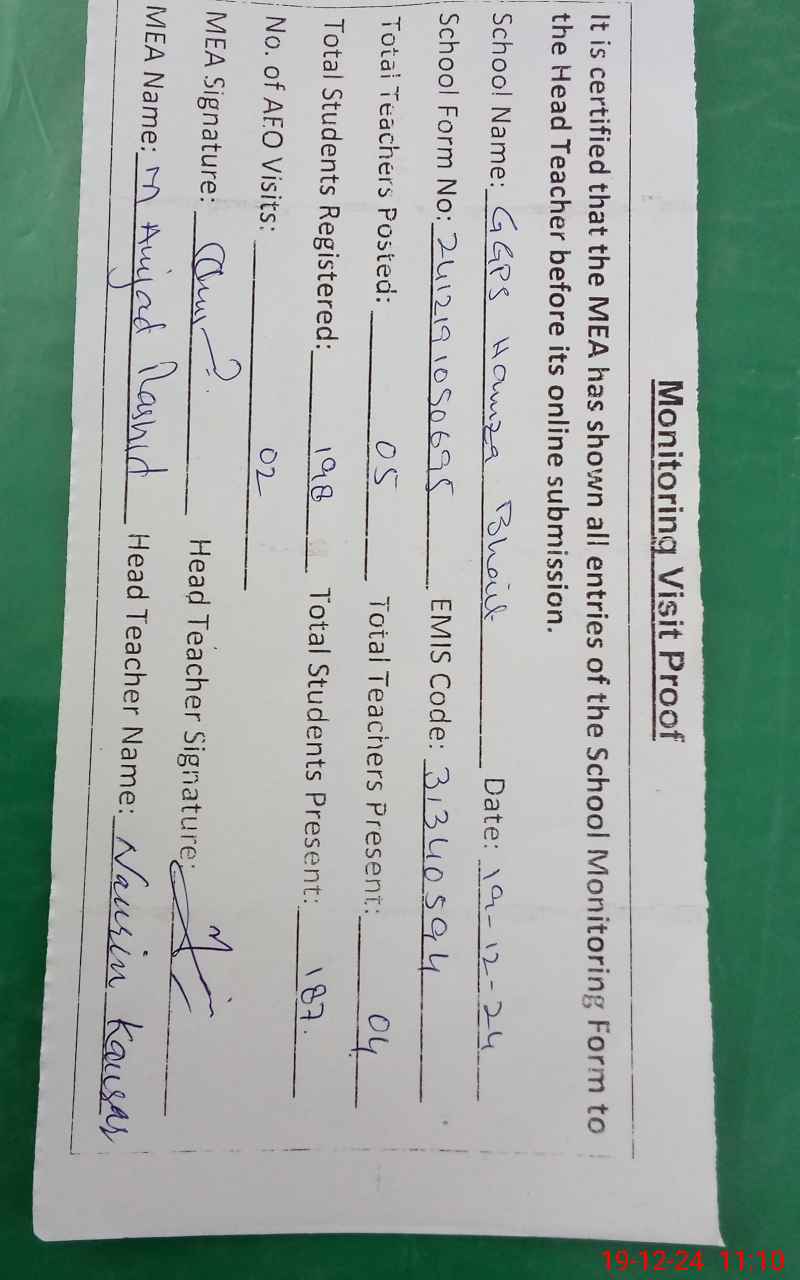 Monitoring Visit Proof
It is certified that the MEA has shown all entries of the School Monitoring Form to
the Head Teacher before its online submission.
School Name: GGPS Hamza Bhait Date: 19-12-24
School Form No: 2412191050695 EMIS Code: 31340594
Total Teachers Posted: 05 Total Teachers Present: 04
Total Students Registered: 198 Total Students Present: 187.
No. of AEO Visits: 02
MEA Signature: Head Teacher Signature:
MEA Name: M Amjad Rashid Head Teacher Name: Nausin Kausar
19-12-24 11:10